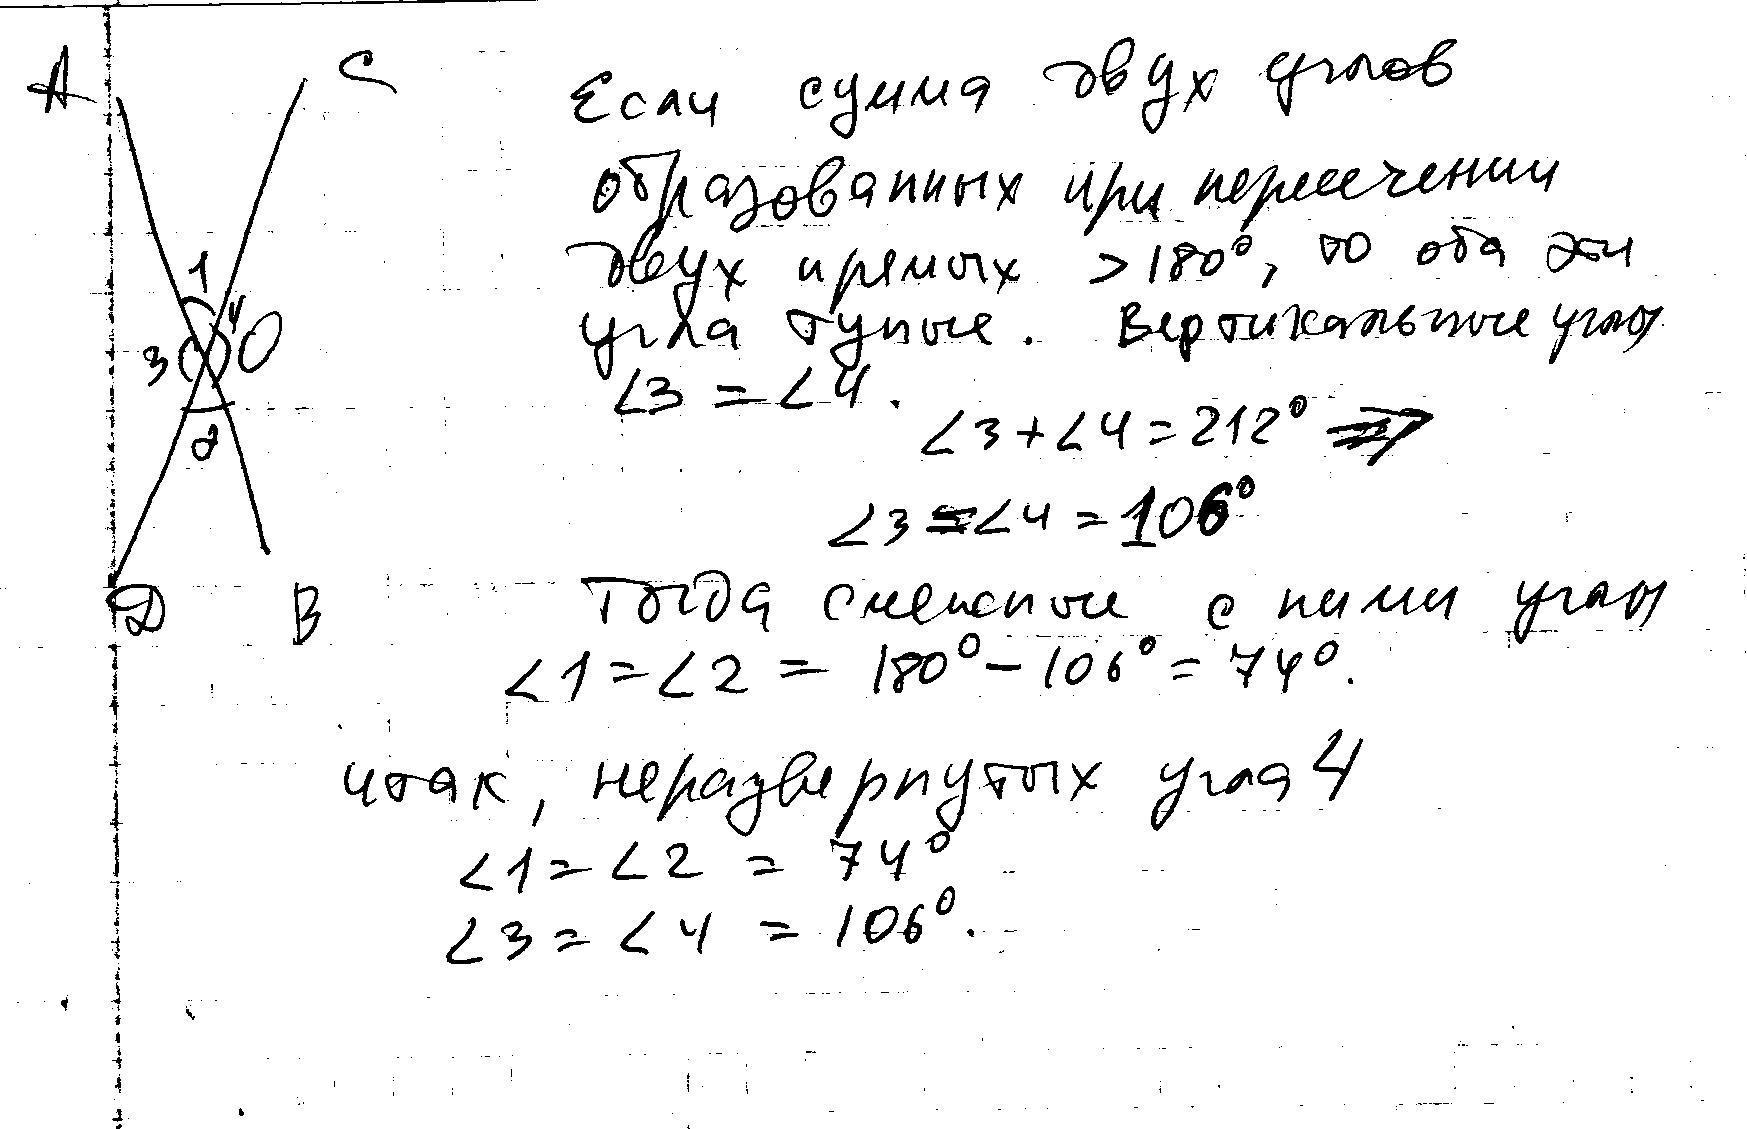 A
C
1
4
3
O
2
D
B
Если сумма двух углов
образованных при пересечении
двух прямых > 180°, то оба эти
угла тупые. Вертикальные углы
∠3 = ∠4.
∠3 + ∠4 = 212° ⇒
∠3 = ∠4 = 106°
Тогда смежные с ними углы
∠1 = ∠2 = 180° - 106° = 74°.
итак, неразвернутых угла 4
∠1 = ∠2 = 74°
∠3 = ∠4 = 106°.